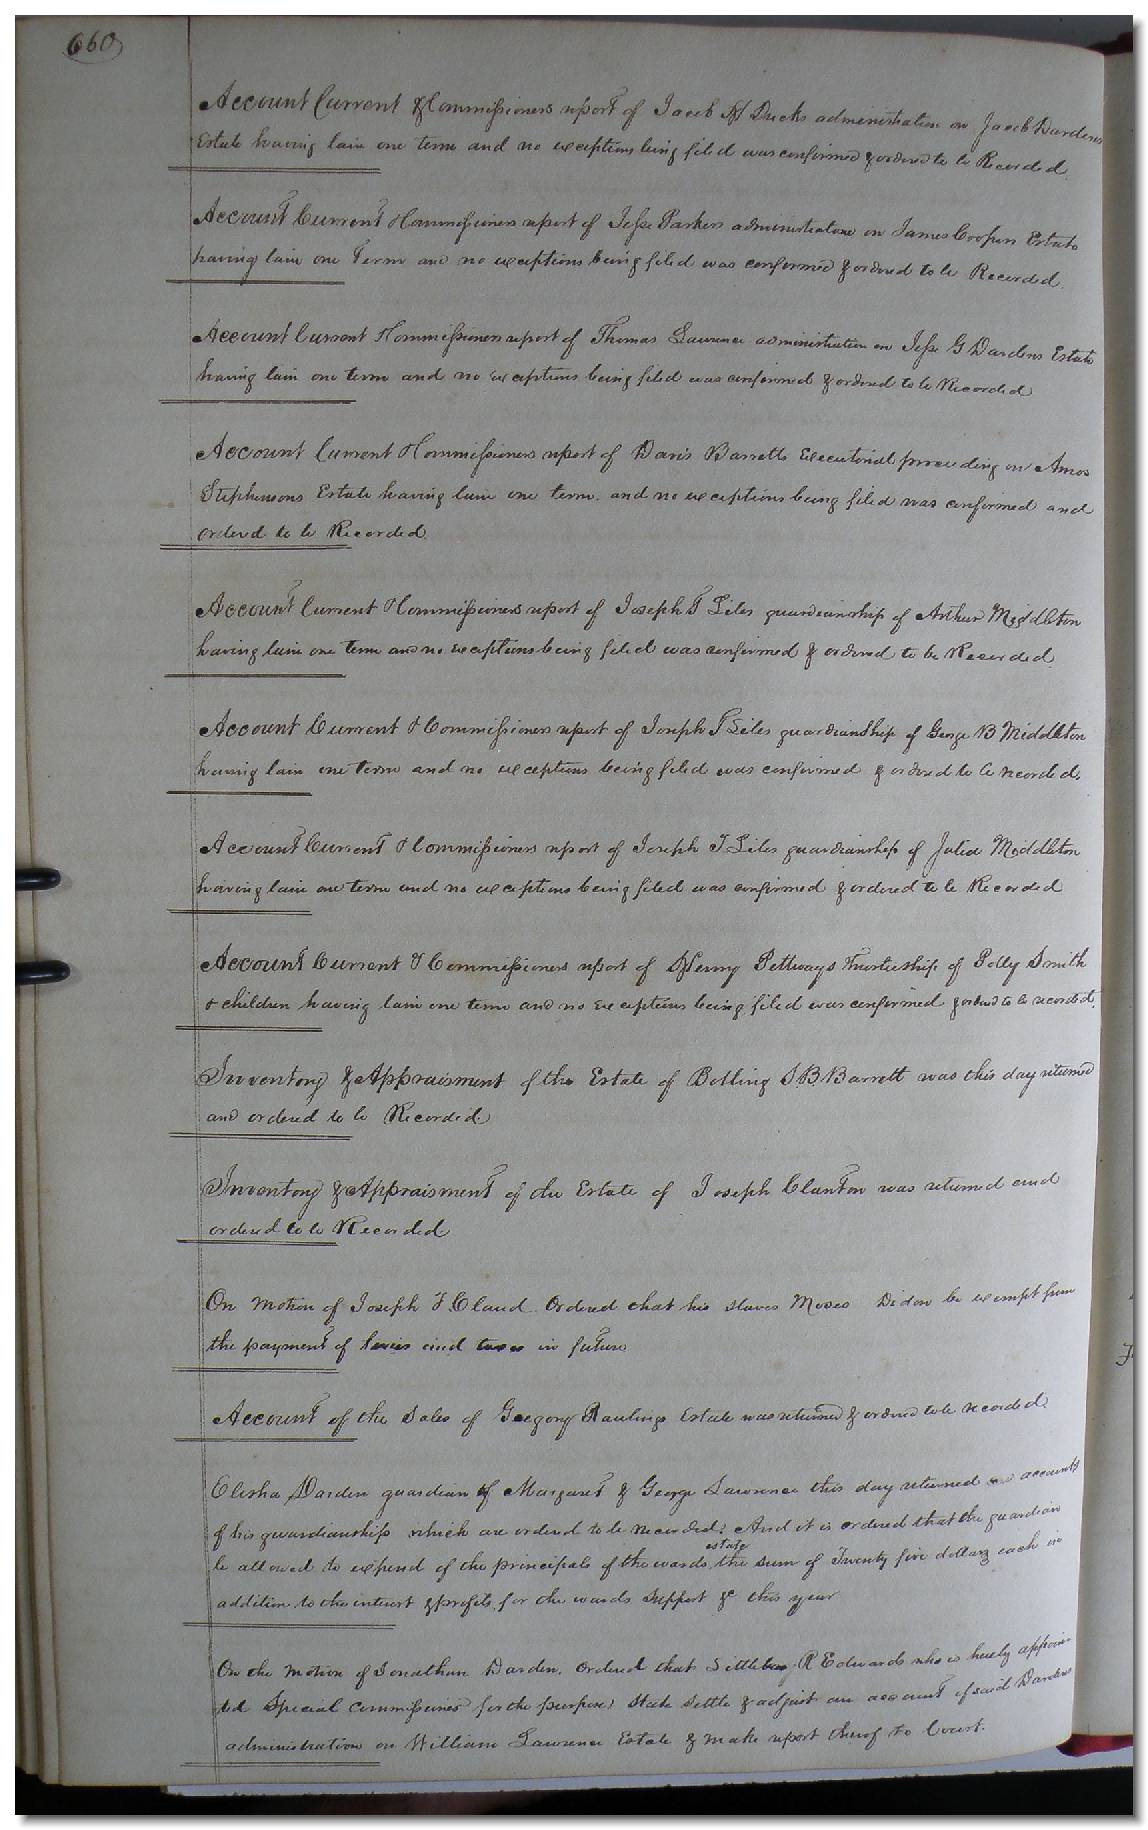 660
Account Current & Commissioners report of Jacob H Ducks administration on Jacob Dardens
Estate having lain one term and no exceptions being filed was confirmed & ordered to be Recorded
Account Current & Commissioners report of Jesse Parkers administration on James Coopers Estate
having lain one Term and no exceptions being filed was confirmed & ordered to be Recorded.
Account Current & Commissioners report of Thomas Lawrence administration on Jesse G Dardens Estate
having lain one term and no exceptions being filed was confirmed & ordered to be Recorded
Account Current & Commissioners report of Davis Barretts Executorial proceeding on Amos
Stephensons Estate having lain one term and no exceptions being filed was confirmed and
ordered to be Recorded
Account Current & Commissioners report of Joseph T Liles guardianship of Arthur Middleton
having lain one term and no exceptions being filed was confirmed & ordered to be Recorded
Account Current & Commissioners report of Joseph T Liles guardianship of George B Middleton
having lain one term and no exceptions being filed was confirmed & ordered to be recorded.
Account Current & Commissioners report of Joseph T Liles guardianship of Julia Middleton
having lain one term and no exceptions being filed was confirmed & ordered to be Recorded
Account Current & Commissioners report of Henry Pettways Trusteeship of Polly Smith
& children having lain one term and no exceptions being filed was confirmed & ordered to be recorded.
Inventory & Appraisment of the Estate of Bolling S B Barrett was this day returned
and ordered to be Recorded
Inventory & Appraisment of the Estate of Joseph Clanton was returned and
ordered to be Recorded
On motion of Joseph T Claud Ordered that his slaves Moses Didon be exempt from
the payment of levies and taxes in future
Account of the Sales of Gregory Rawlings Estate was returned & ordered to be recorded.
Elisha Darden guardian of Margaret & George Lawrence this day returned accounts
of his guardianship which are ordered to be recorded; And it is ordered that the guardian
be allowed to expend of the principals of the wards estate the sum of Twenty five dollars each in
addition to the interest & profits, for the wards support & this year
On the motion of Jonathan Darden. Ordered that Littlebury R Edwards who is hereby appoin-
ted Special Commissioner for the purpose, State settle & adjust an account of said Dardens
administration on William Lawrence Estate & make report thereof to Court.